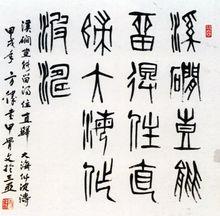 溪澗豈能
留得住直
歸大海作
波濤
溪澗豈能留得住直歸大海作波濤
甲戌年方
甲骨文於三亞